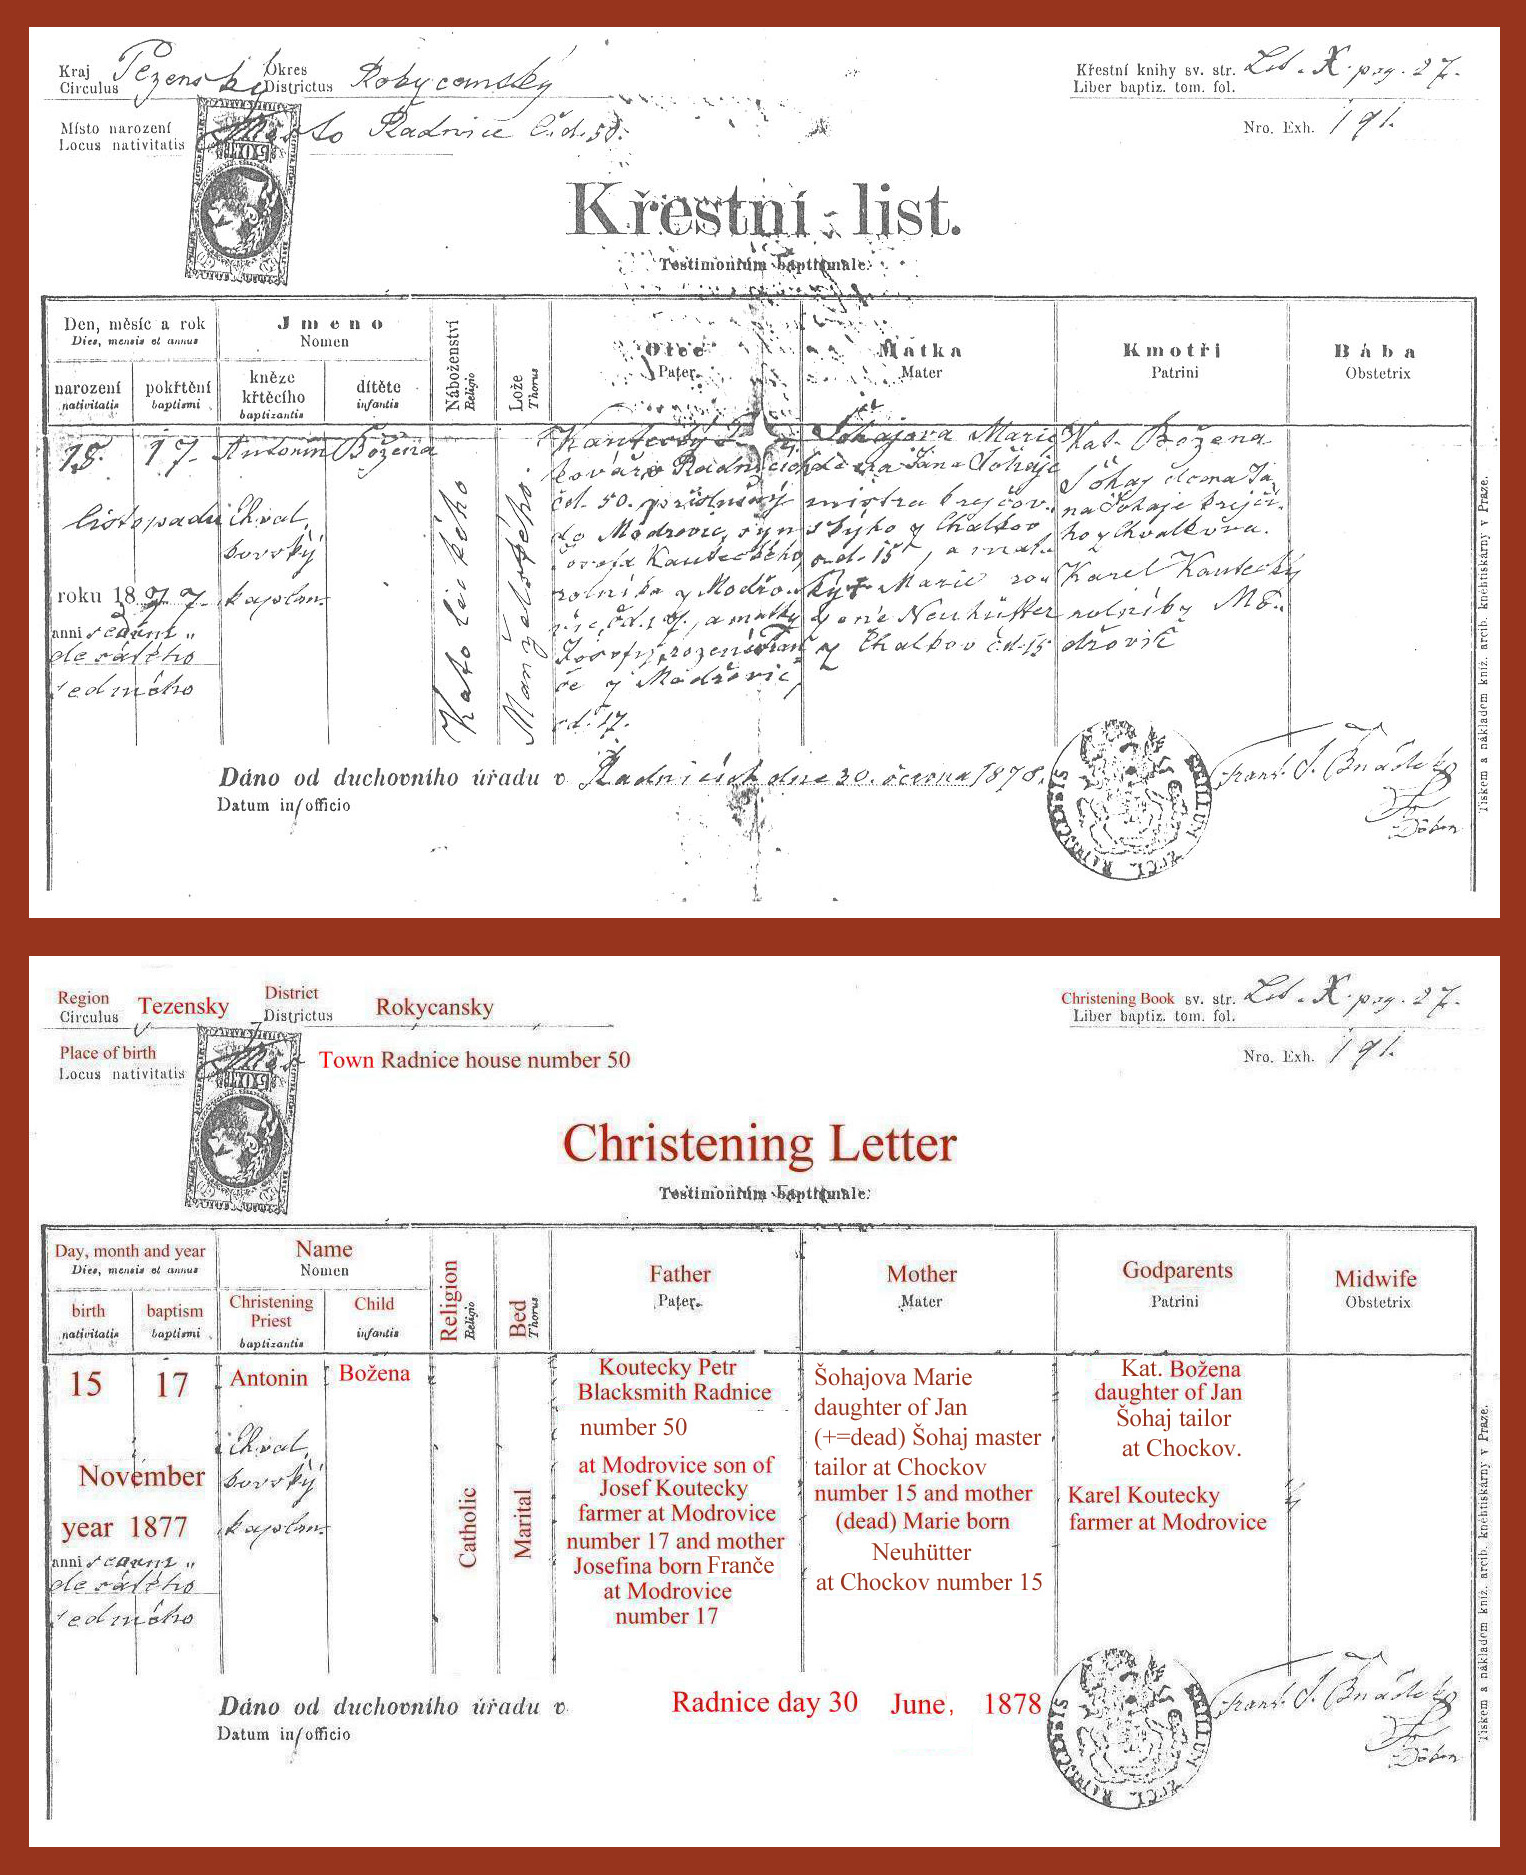 Kraj
Circulus
Okres
Districtus
Rokycanský
Křestní knihy sv. str. Lib. X. pag. 27.
Liber baptiz. tom. fol.
Místo narození
Locus nativitatis
Město Radnice č.d. 50.
Nro. Exh. 191.
Křestní list.
Testimonium baptismale.
Den, měsíc a rok
Dies, mensis et annus
Jmeno
Nomen
Náboženství
Religio
Lože
Thorus
Otec
Pater
Matka
Mater
Kmotři
Patrini
Bába
Obstetrix
narození
nativitatis
pokřtění
baptismi
kněze
křtěcího
baptizantis
dítěte
infantis
15.
17.
listopadu
roku 1877.
anni sedm„
desátého
sedmého
Antonín
Chval
kaplan
Božena
Katolického
Manželského
Koutecký
kovář v Radnicích
čd. 50. příslušný
do Modrovic, syn
Josefa Kouteckého
rolníka z Modřo
a matky
Josefy, rozené Fran
če z Modřovic
čd. 17.
Šohajova Marie
dcera Jana Šohaje
mistra krejčov.
čd. 15, a mat
ky † Marie roz
ené Neuhütter
z Chalkov čd. 15
Kat. Božena
Šohaj dcera Ja
na Šohaje krejčí
ho z Chvalkova.
Karel Koutecký
rolník z Mo
dřovic
Dáno od duchovního úřadu v Radnicích dne 30. června 1878.
Datum in officio
SIGILLUM ECCL. RADNICENSIS
Děkan
Tiskem a nákladem kníž. arcib. kněhtiskárny v Praze.
Region
Circulus
Tezensky
District
Districtus
Rokycansky
Christening Book sv. str. Lib. X. pag. 27.
Liber baptiz. tom. fol.
Place of birth
Locus nativitatis
Town Radnice house number 50
Nro. Exh. 191.
Christening Letter
Testimonium baptismale.
Day, month and year
Dies, mensis et annus
Name
Nomen
Religion
Religio
Bed
Thorus
Father
Pater.
Mother
Mater
Godparents
Patrini
Midwife
Obstetrix
birth
nativitatis
baptism
baptismi
Christening
Priest
baptizantis
Child
infantis
15
17
November
year 1877
anni sedm„
desátého
sedmého
Antonin
Chval
kaplan
Božena
Catholic
Marital
Koutecky Petr
Blacksmith Radnice
number 50
at Modrovice son of
Josef Koutecky
farmer at Modrovice
number 17 and mother
Josefina born Franče
at Modrovice
number 17
Šohajova Marie
daughter of Jan
(+=dead) Šohaj master
tailor at Chockov
number 15 and mother
(dead) Marie born
Neuhütter
at Chockov number 15
Kat. Božena
daughter of Jan
Šohaj tailor
at Chockov.
Karel Koutecky
farmer at Modrovice
Dáno od duchovního úřadu v
Radnice day 30 June, 1878
Datum in officio
SIGILLUM ECCL. RADNICENSIS
Děkan
Tiskem a nákladem kníž. arcib. kněhtiskárny v Praze.